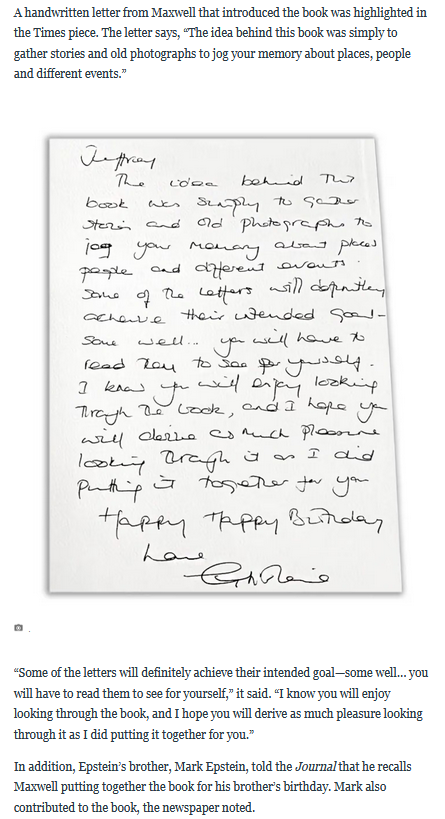 A handwritten letter from Maxwell that introduced the book was highlighted in
the Times piece. The letter says, “The idea behind this book was simply to
gather stories and old photographs to jog your memory about places, people
and different events.”
Jeffrey
The idea behind this
book was simply to gather
stories and old photographs to
jog your memory about places
people and different events.
Some of the letters will definitley
achieve their intended goal-
some well... you will have to
read them to see for yourself.
I know you will enjoy looking
through the book, and I hope you
will derive as much pleasure
looking through it as I did
putting it together for you
Happy Happy Birthday
Love
Ghislaine
“Some of the letters will definitely achieve their intended goal—some well… you
will have to read them to see for yourself,” it said. “I know you will enjoy
looking through the book, and I hope you will derive as much pleasure looking
through it as I did putting it together for you.”
In addition, Epstein’s brother, Mark Epstein, told the Journal that he recalls
Maxwell putting together the book for his brother’s birthday. Mark also
contributed to the book, the newspaper noted.